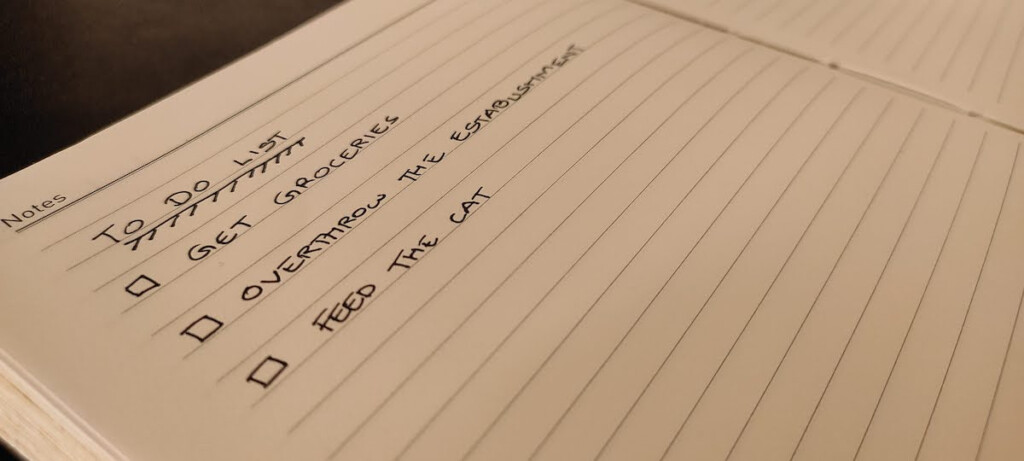 Notes
TO DO LIST
GET GROCERIES
OVERTHROW THE ESTABLISHMENT
FEED THE CAT